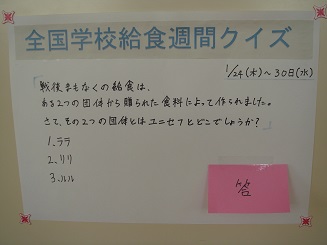 全国学校給食週間クイズ
1/24(木)~30日(水)
戦後まもなくの給食は、
ある2つの団体から贈られた食料によって作られました。
さて、その2つの団体とはユニセフとどこでしょうか?
1.ララ
2.リリ
3.ルル
答